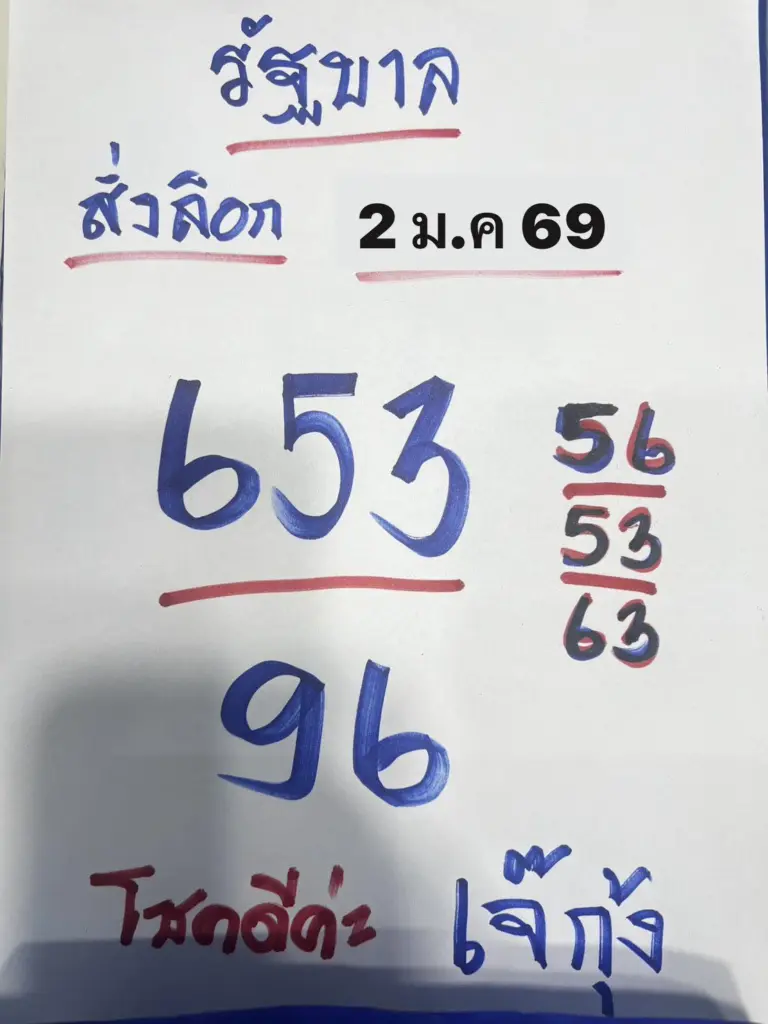 รัฐบาล
สั่งลือก 2 ม.ค 69
653
56
53
63
96
โชคดีค่ะ เจ๊กุ้ง